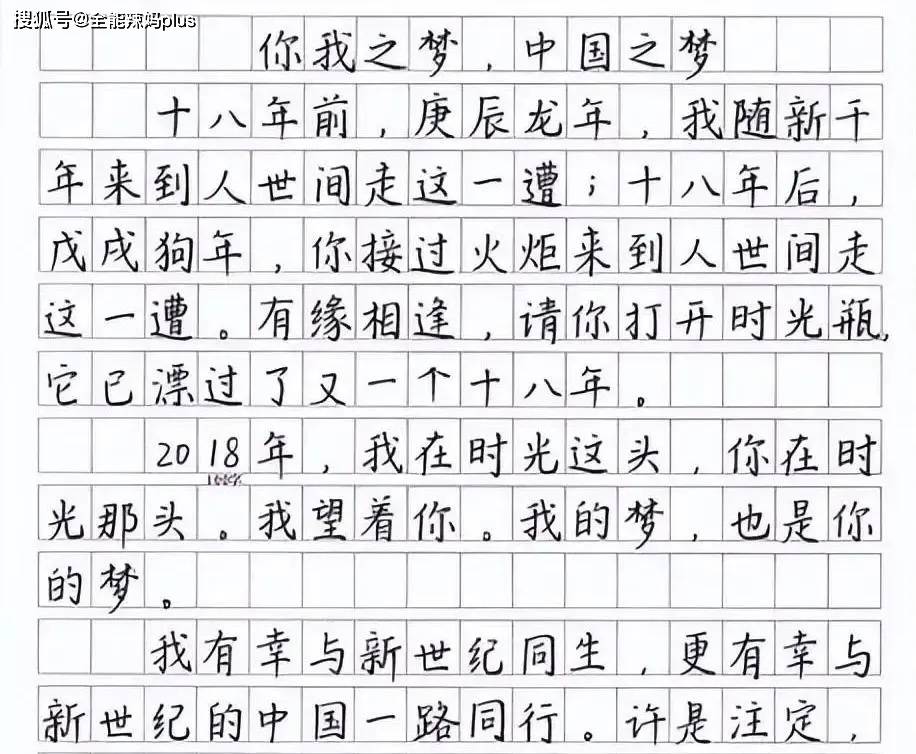 搜狐号@全能辣妈plus
你我之梦，中国之梦
十八年前，庚辰龙年，我随新千
年来到人世间走这一遭；十八年后，
戊戌狗年，你接过火炬来到人世间走
这一遭。有缘相逢，请你打开时光瓶，
它已漂过了又一个十八年。
2018年，我在时光这头，你在时
光那头。我望着你。我的梦，也是你
的梦。
我有幸与新世纪同生，更有幸与
新世纪的中国一路同行。许是注定，